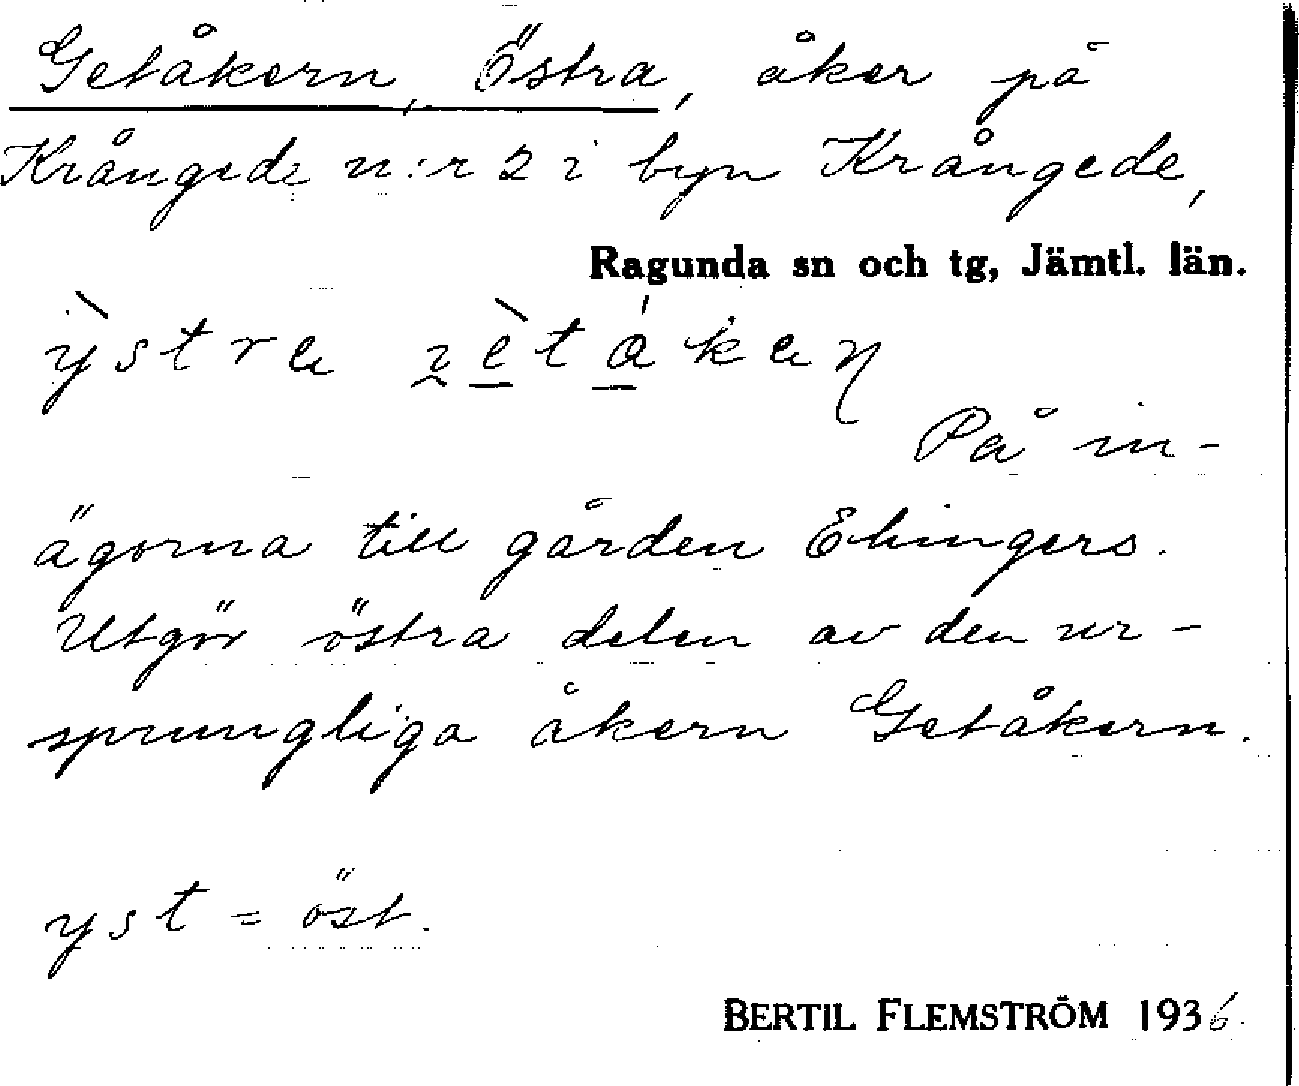 Getåkern, Östra, åker på
Krångede n:r 2 i byn Krångede,
Ragunda sn och tg, Jämtl. län.
På in-
ägorna till gården Ehingers.
Utgör östra delen av den ur-
sprungliga åkern Getåkern.
yst = öst.
BERTIL FLEMSTRÖM 1936.